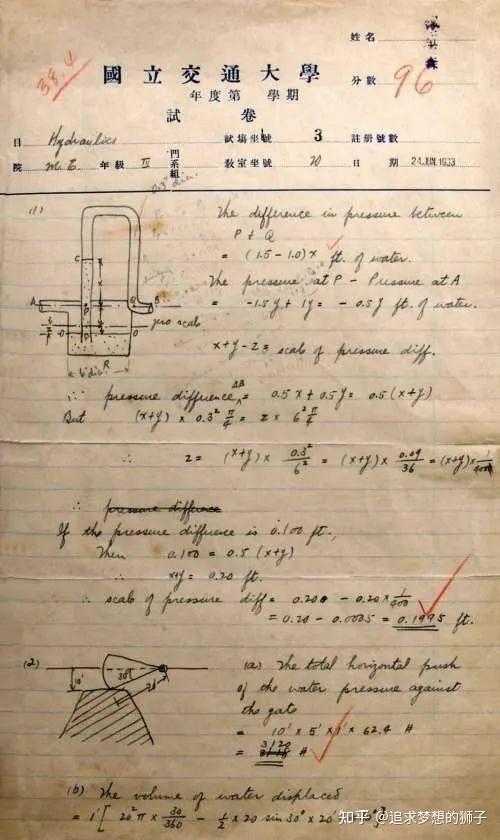 姓名
38.4
國立交通大學
分數
96
年度第 學期
試卷
目 Hydraulics 試場坐號 3 註册號數
院 M.E. 年級 IV 門系組 敎室坐號 20 日期 24 JUN 1933
0.3" dia.
(1)
The difference in pressure between
P & Q
= (1.5 - 1.0)x ft. of water.
The pressure at P - Pressure at A
= -1.5y + 1y = -0.5y ft. of water.
C
A
P
Q
B
zero scale
O
O
R
6" dia
x+y-z = scale of pressure diff.
∴ pressure difference AB = 0.5x + 0.5y = 0.5(x+y)
But (x+y) × 0.3² π/4 = z × 6² π/4
∴ z = (x+y) × 0.3²/6² = (x+y) × 0.09/36 = (x+y) × 1/400
∴ pressure difference
If the pressure difference is 0.100 ft.,
Then 0.100 = 0.5 (x+y)
∴ x+y = 0.20 ft.
∴ scale of pressure diff = 0.200 - 0.20 × 1/400
= 0.20 - 0.0005 = 0.1995 ft.
(2)
10'
30°
20'
(a) The total horizontal push
of the water pressure against
the gate
= 10' × 5' × 1' × 62.4 #
= 3120 #
(b) The volume of water displaced
= 1' [ 20² π × 30/360 - 1/2 × 20 sin 30° × 20
知乎 @追求梦想的狮子